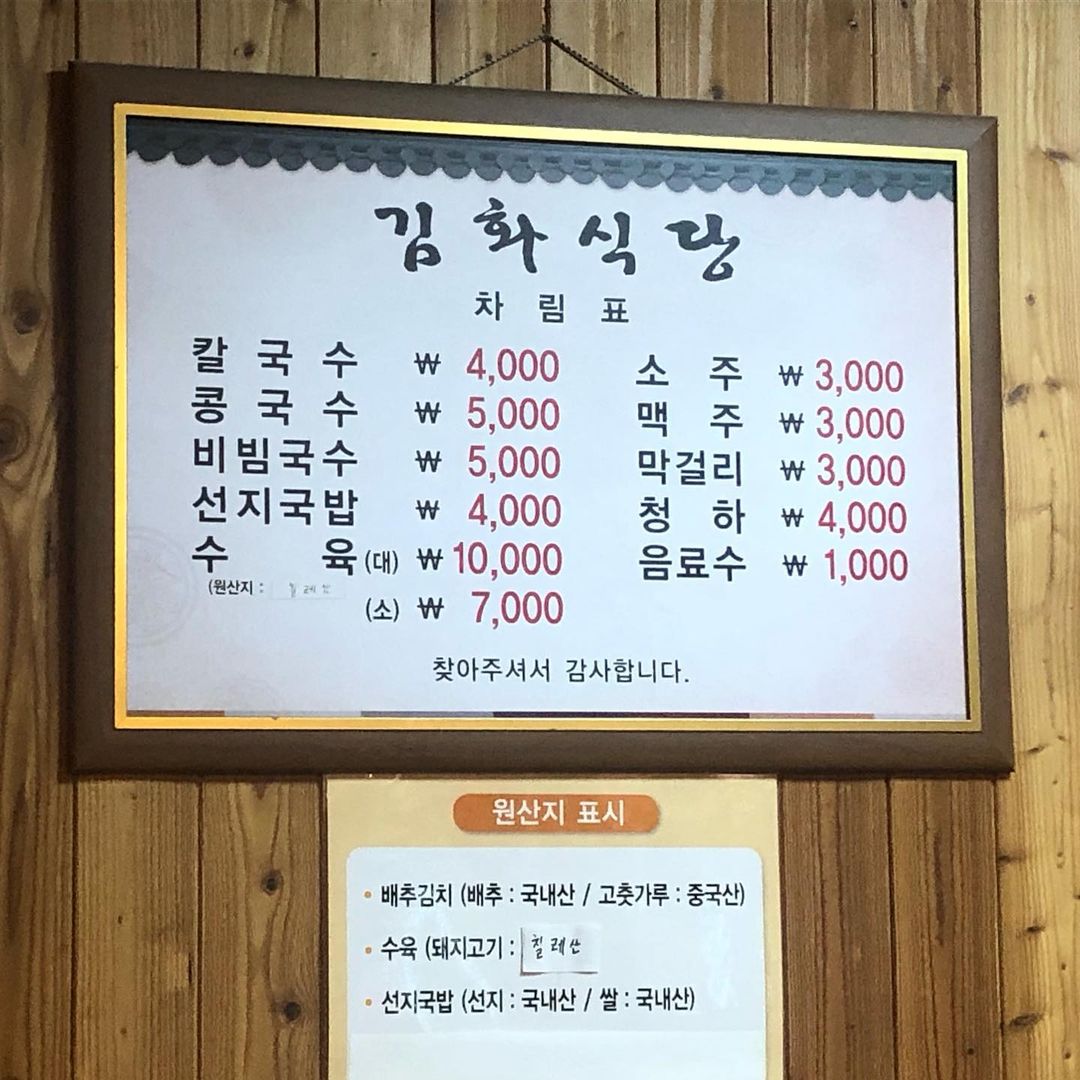 김화식당
차림표
칼국수 ₩ 4,000
콩국수 ₩ 5,000
비빔국수 ₩ 5,000
선지국밥 ₩ 4,000
수육 (대) ₩ 10,000
(원산지 : 칠레산
(소) ₩ 7,000
소주 ₩ 3,000
맥주 ₩ 3,000
막걸리 ₩ 3,000
청하 ₩ 4,000
음료수 ₩ 1,000
찾아주셔서 감사합니다.
원산지 표시
• 배추김치 (배추 : 국내산 / 고춧가루 : 중국산)
• 수육 (돼지고기 : 칠레산
• 선지국밥 (선지 : 국내산 / 쌀 : 국내산)